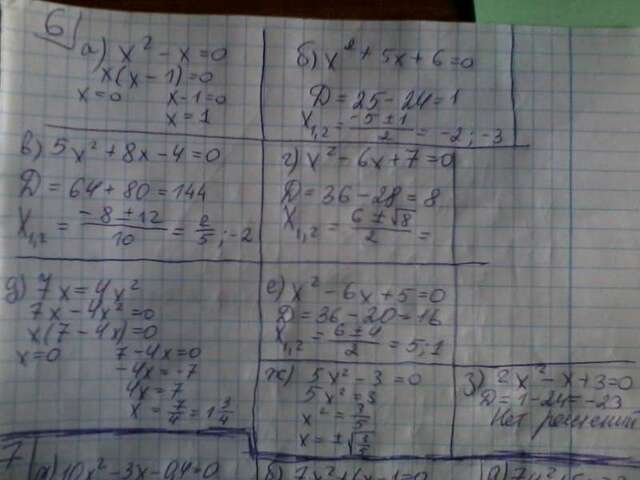 6
а) x² - x = 0
x(x - 1) = 0
x = 0 x - 1 = 0
x = 1
б) x² + 5x + 6 = 0
D = 25 - 24 = 1
X₁,₂ = (-5 ± 1)/2 = -2; -3
в) 5x² + 8x - 4 = 0
D = 64 + 80 = 144
X₁,₂ = (-8 ± 12)/10 = 2/5; -2
г) x² - 6x + 7 = 0
D = 36 - 28 = 8
X₁,₂ = (6 ± √8)/2 =
д) 7x = 4x²
7x - 4x² = 0
x(7 - 4x) = 0
x = 0 7 - 4x = 0
-4x = -7
4x = 7
x = 7/4 = 1 3/4
е) x² - 6x + 5 = 0
D = 36 - 20 = 16
X₁,₂ = (6 ± 4)/2 = 5; 1
ж) 5x² - 3 = 0
5x² = 3
x² = 3/5
x = ±√(3/5)
з) 2x² - x + 3 = 0
D = 1 - 24 = -23
Нет решений
7
а) 10x² - 3x - 0,4 = 0
б) 7x²